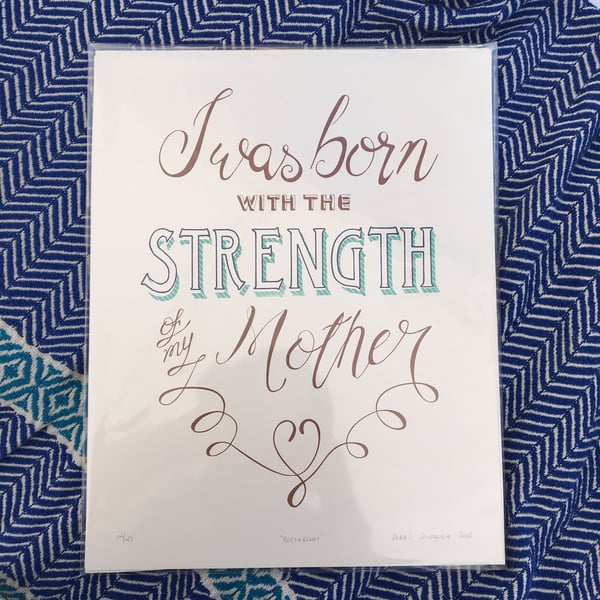 I was born
WITH THE
STRENGTH
of my
Mother
'BIRTHRIGHT'